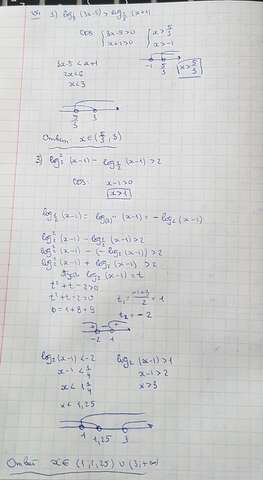 1) log½ (3x-5) > log½ (x+1)
ОДЗ { 3x-5>0 { x> 5/3
x+1>0 x>-1
-1 5/3 x> 5/3
3x-5 < x+1
2x<6
x<3
5/3 3
Ответ x∈(5/3, 3)
3) log₂² (x-1) - log½ (x-1) > 2
ОДЗ: x-1>0
x>1
log½ (x-1) = (x-1) = -log₂ (x-1)
log₂² (x-1) - log½ (x-1) > 2
log₂² (x-1) - (-log₂ (x-1)) > 2
log₂² (x-1) + log₂ (x-1) > 2
log₂ (x-1) = t
t²+t-2>0
t²+t-2=0 t₁ = -1+3/2 = 1
D = 1+8=9 t₂ = -2
+ - +
-2 1
log₂ (x-1) <-2 log₂ (x-1) >1
x-1 < 1/4 x-1 >2
x< 1 1/4 x>3
x< 1,25
1 1,25 3
Ответ x∈ (1; 1,25) ∪ (3; +∞)